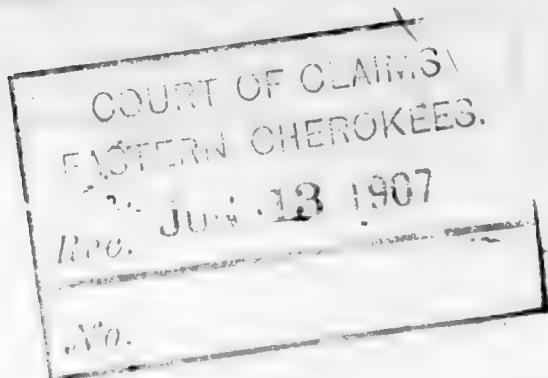 COURT OF CLAIMS
EASTERN CHEROKEES.
Rec. JUN 13 1907
No.